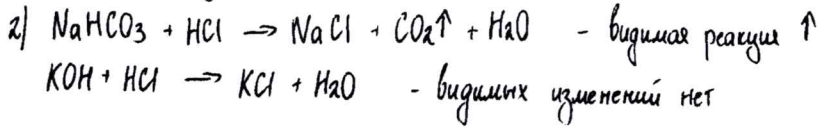 2) NaHCO3 + HCl → NaCl + CO2↑ + H2O - видимая реакция ↑
KOH + HCl → KCl + H2O - видимых изменений нет